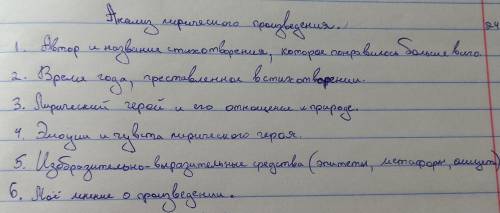 Анализ лирического произведения.
24
1. Автор и название стихотворения, которое понравилось больше всего.
2. Время года, преставленное в стихотворении.
3. Лирический герой и его отношение к природе.
4. Эмоции и чувства лирического героя.
5. Изобразительно-выразительные средства (эпитеты, метафоры,
6. Моё мнение о произведении.